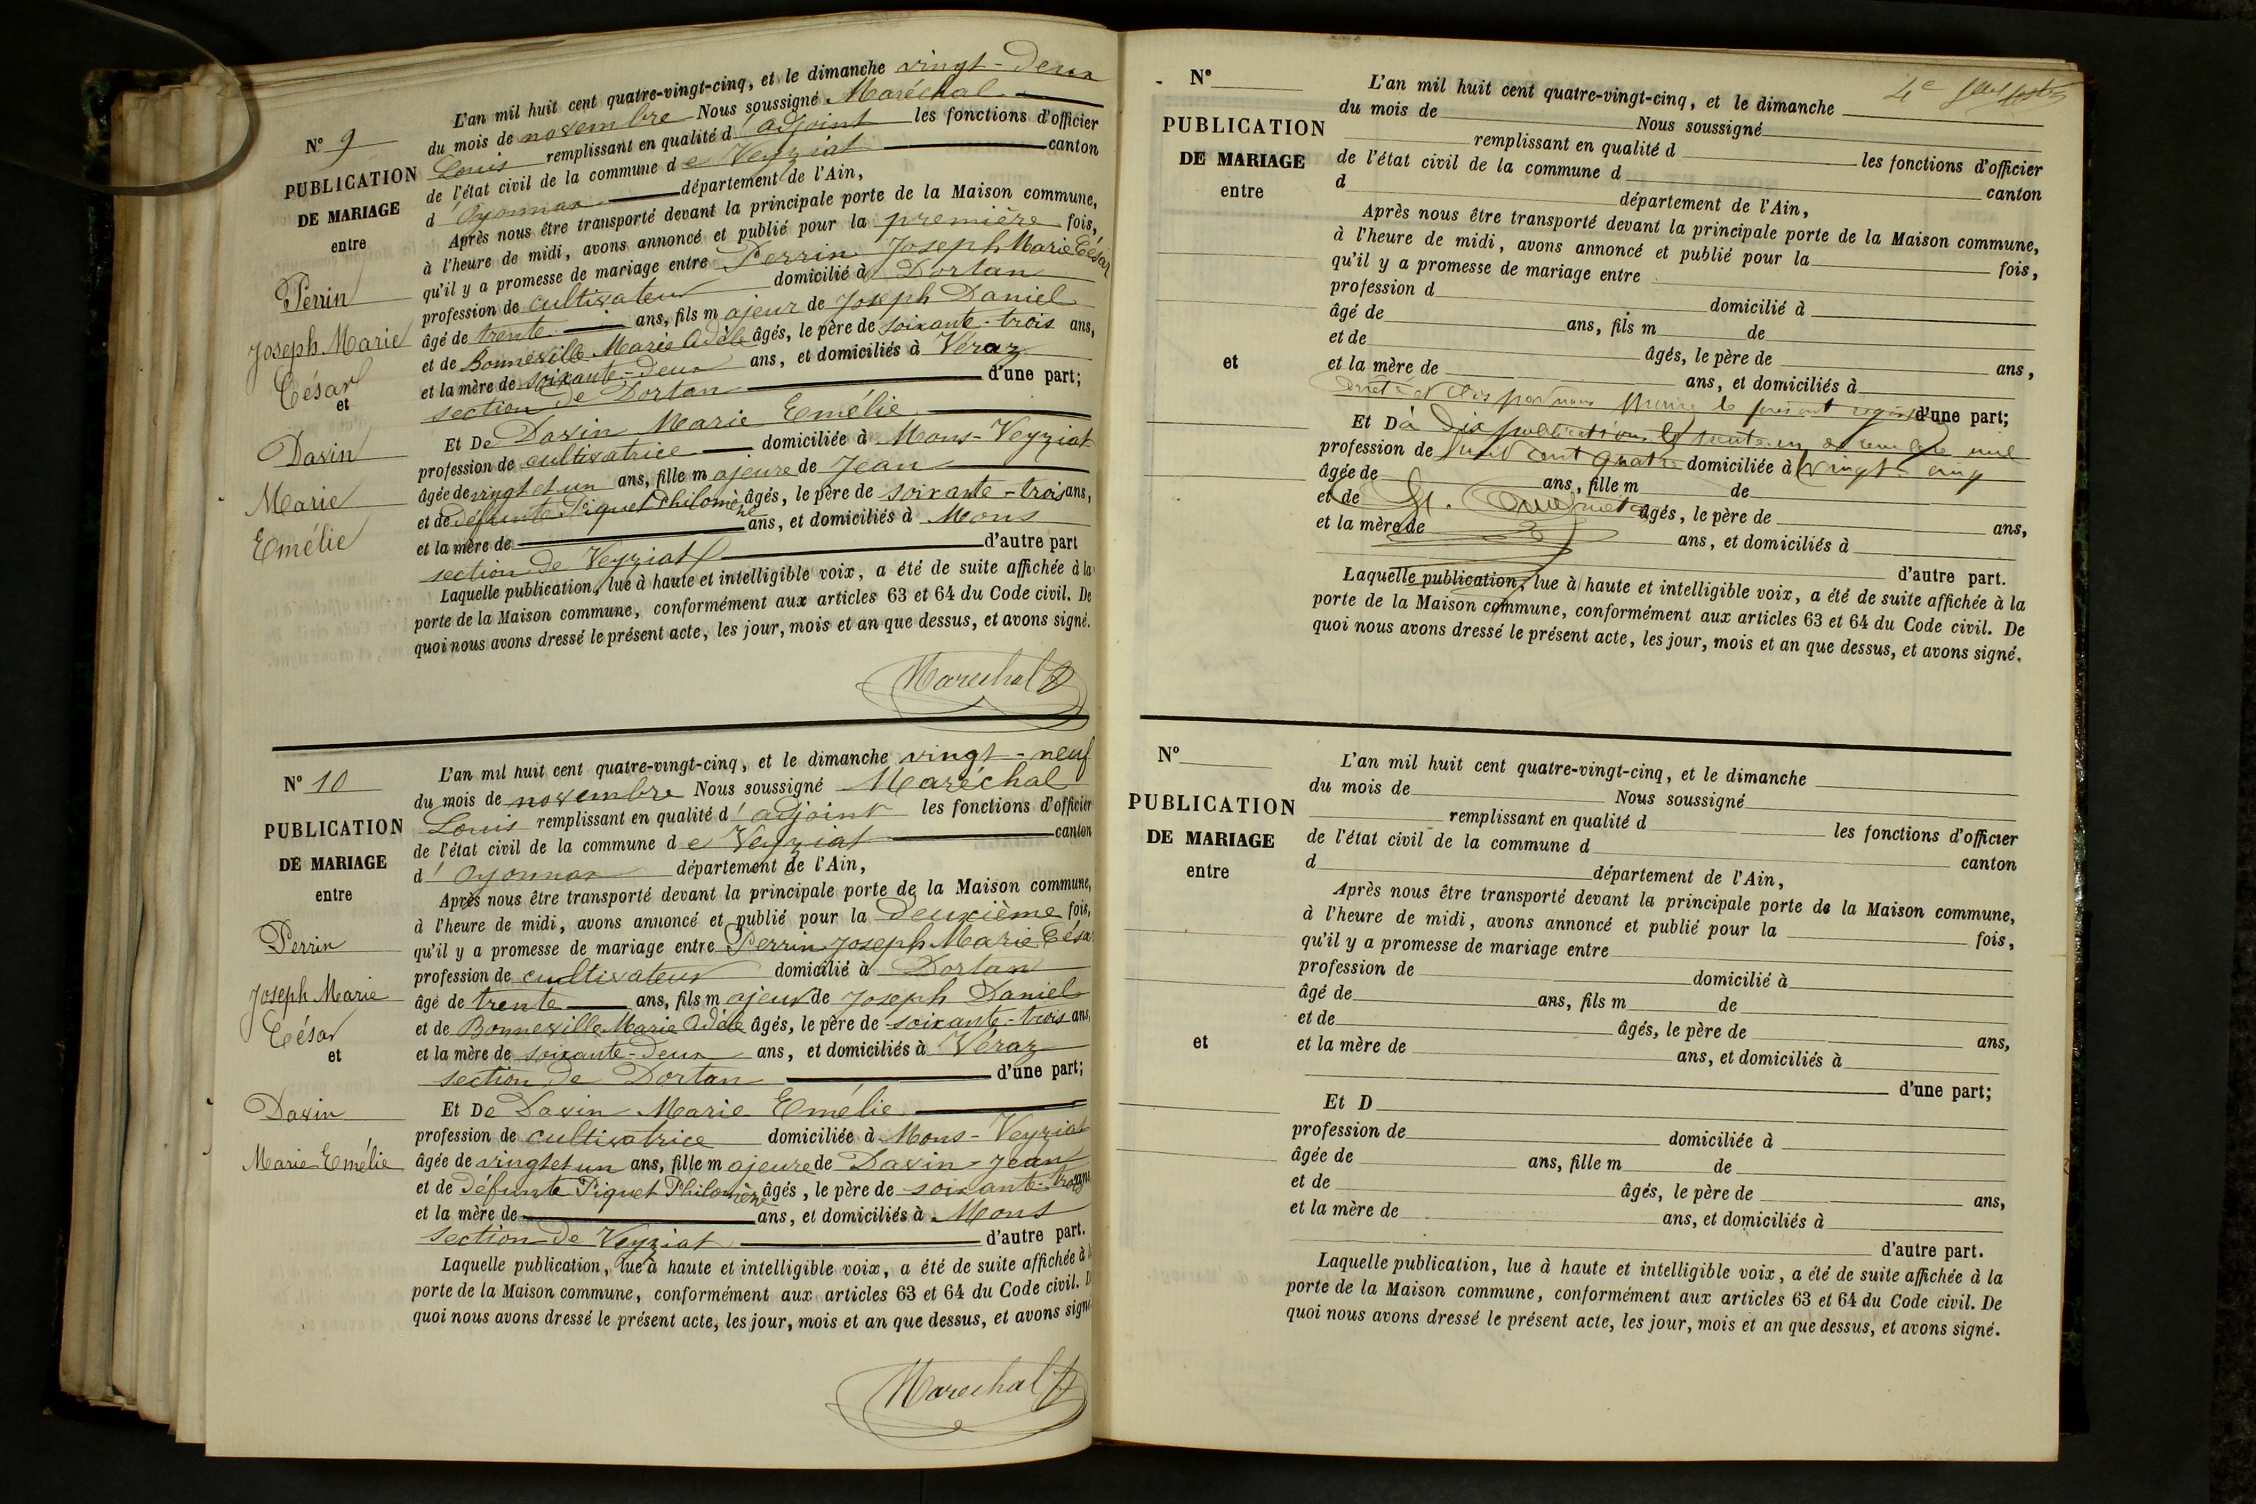 L'an mil huit cent quatre-vingt-cinq, et le dimanche vingt-deux
N° 9
du mois de novembre Nous soussigné Maréchal
Louis remplissant en qualité d'adjoint les fonctions d'officier
PUBLICATION
de l'état civil de la commune de Veyziat canton
DE MARIAGE
d'Oyonnax département de l'Ain,
entre
Après nous être transporté devant la principale porte de la Maison commune,
à l'heure de midi, avons annoncé et publié pour la première fois,
qu'il y a promesse de mariage entre Perrin Joseph Marie César
Perrin
profession de cultivateur domicilié à Dortan
Joseph Marie
âgé de trente ans, fils majeur de Joseph Daniel
et de Bonneville Marie Adèle âgés, le père de soixante-trois ans,
César
et la mère de soixante-deux ans, et domiciliés à Véraz
et
section de Dortan d'une part;
Davin
Et De Davin Marie Emélie
profession de cultivatrice domiciliée à Mons-Veyziat
Marie
âgée de vingt et un ans, fille majeure de Jean
et de défunte Piquet Philomène âgés, le père de soixante-trois ans,
Emélie
et la mère de ans, et domiciliés à Mons
section de Veyziat d'autre part
Laquelle publication, lue à haute et intelligible voix, a été de suite affichée à la
porte de la Maison commune, conformément aux articles 63 et 64 du Code civil. De
quoi nous avons dressé le présent acte, les jour, mois et an que dessus, et avons signé.
Marechal
L'an mil huit cent quatre-vingt-cinq, et le dimanche vingt-neuf
N° 10
du mois de novembre Nous soussigné Maréchal
Louis remplissant en qualité d'adjoint les fonctions d'officier
PUBLICATION
de l'état civil de la commune de Veyziat canton
DE MARIAGE
d'Oyonnax département de l'Ain,
entre
Après nous être transporté devant la principale porte de la Maison commune,
à l'heure de midi, avons annoncé et publié pour la deuxième fois,
Perrin
qu'il y a promesse de mariage entre Perrin Joseph Marie César
profession de cultivateur domicilié à Dortan
Joseph Marie
âgé de trente ans, fils majeur de Joseph Daniel
César
et de Bonneville Marie Adèle âgés, le père de soixante-trois ans,
et
et la mère de soixante-deux ans, et domiciliés à Véraz
section de Dortan d'une part;
Davin
Et De Davin Marie Emélie
profession de cultivatrice domiciliée à Mons-Veyziat
Marie Emélie
âgée de vingt et un ans, fille majeure de Davin Jean
et de défunte Piquet Philomène âgés, le père de soixante-trois ans
et la mère de ans, et domiciliés à Mons
section de Veyziat d'autre part.
Laquelle publication, lue à haute et intelligible voix, a été de suite affichée à
porte de la Maison commune, conformément aux articles 63 et 64 du Code civil. D
quoi nous avons dressé le présent acte, les jour, mois et an que dessus, et avons signé
Marechal
4e
N°
L'an mil huit cent quatre-vingt-cinq, et le dimanche
du mois de Nous soussigné
PUBLICATION
remplissant en qualité d les fonctions d'officier
DE MARIAGE
de l'état civil de la commune d canton
entre
d département de l'Ain,
Après nous être transporté devant la principale porte de la Maison commune,
à l'heure de midi, avons annoncé et publié pour la fois,
qu'il y a promesse de mariage entre
profession d domicilié à
âgé de ans, fils m de
et de âgés, le père de ans,
et
et la mère de ans, et domiciliés à
arrêté et clos par nous le présent registre d'une part;
Et D à dix publications le trente un décembre mil
profession de huit cent quatre domiciliée à vingt-cinq
âgée de ans, fille m de
et de âgés, le père de ans,
et la mère de ans, et domiciliés à
d'autre part.
Laquelle publication, lue à haute et intelligible voix, a été de suite affichée à la
porte de la Maison commune, conformément aux articles 63 et 64 du Code civil. De
quoi nous avons dressé le présent acte, les jour, mois et an que dessus, et avons signé.
N°
L'an mil huit cent quatre-vingt-cinq, et le dimanche
du mois de Nous soussigné
PUBLICATION
remplissant en qualité d les fonctions d'officier
DE MARIAGE
de l'état civil de la commune d canton
entre
d département de l'Ain,
Après nous être transporté devant la principale porte de la Maison commune,
à l'heure de midi, avons annoncé et publié pour la fois,
qu'il y a promesse de mariage entre
profession de domicilié à
âgé de ans, fils m de
et de âgés, le père de ans,
et
et la mère de ans, et domiciliés à
d'une part;
Et D
profession de domiciliée à
âgée de ans, fille m de
et de âgés, le père de ans,
et la mère de ans, et domiciliés à
d'autre part.
Laquelle publication, lue à haute et intelligible voix, a été de suite affichée à la
porte de la Maison commune, conformément aux articles 63 et 64 du Code civil. De
quoi nous avons dressé le présent acte, les jour, mois et an que dessus, et avons signé.